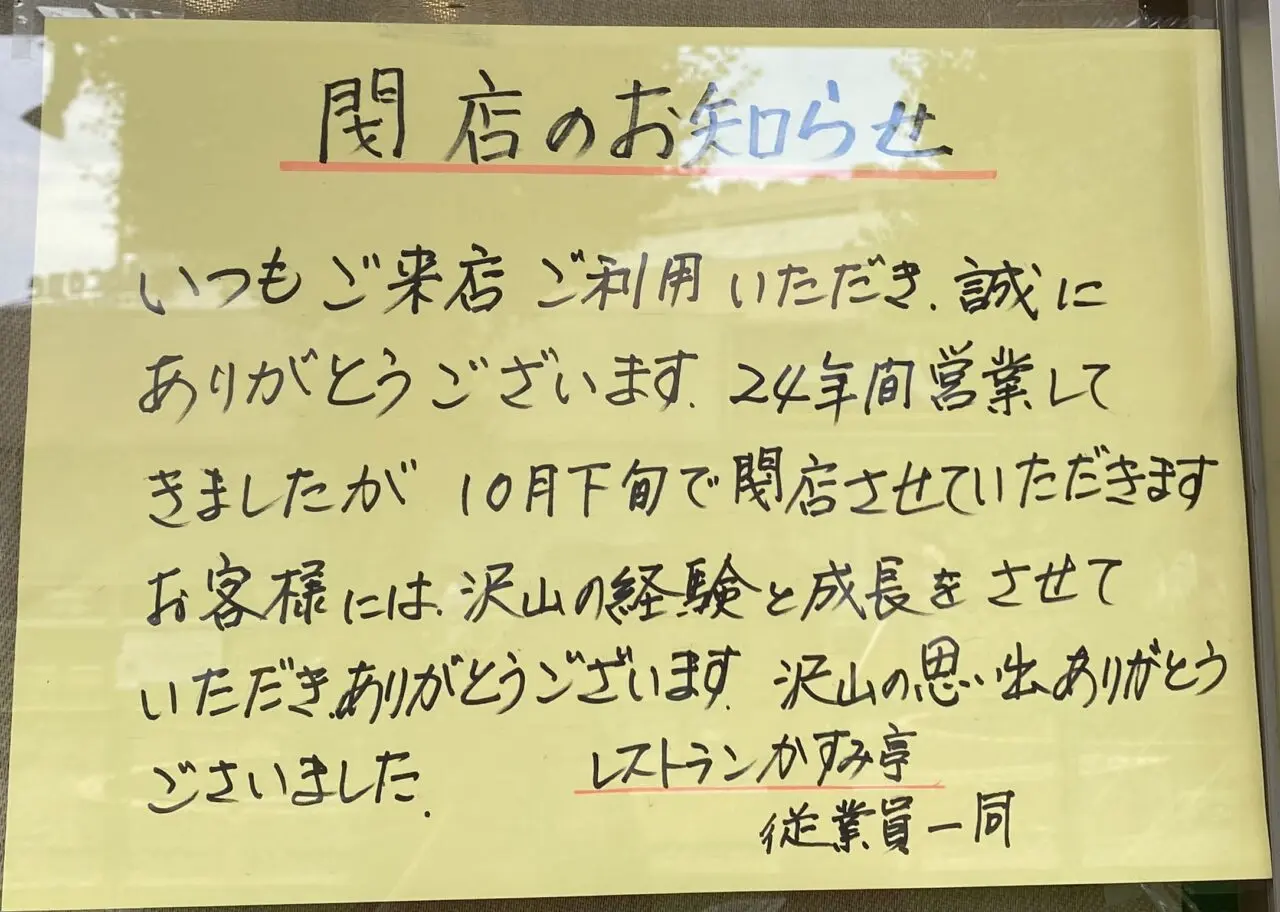 閉店のお知らせ
いつもご来店ご利用いただき、誠に
ありがとうございます。24年間営業して
きましたが 10月下旬で閉店させていただきます
お客様には、沢山の経験と成長をさせて
いただき、ありがとうございます。沢山の思い出ありがとう
ございました。
レストランかすみ亭
従業員一同